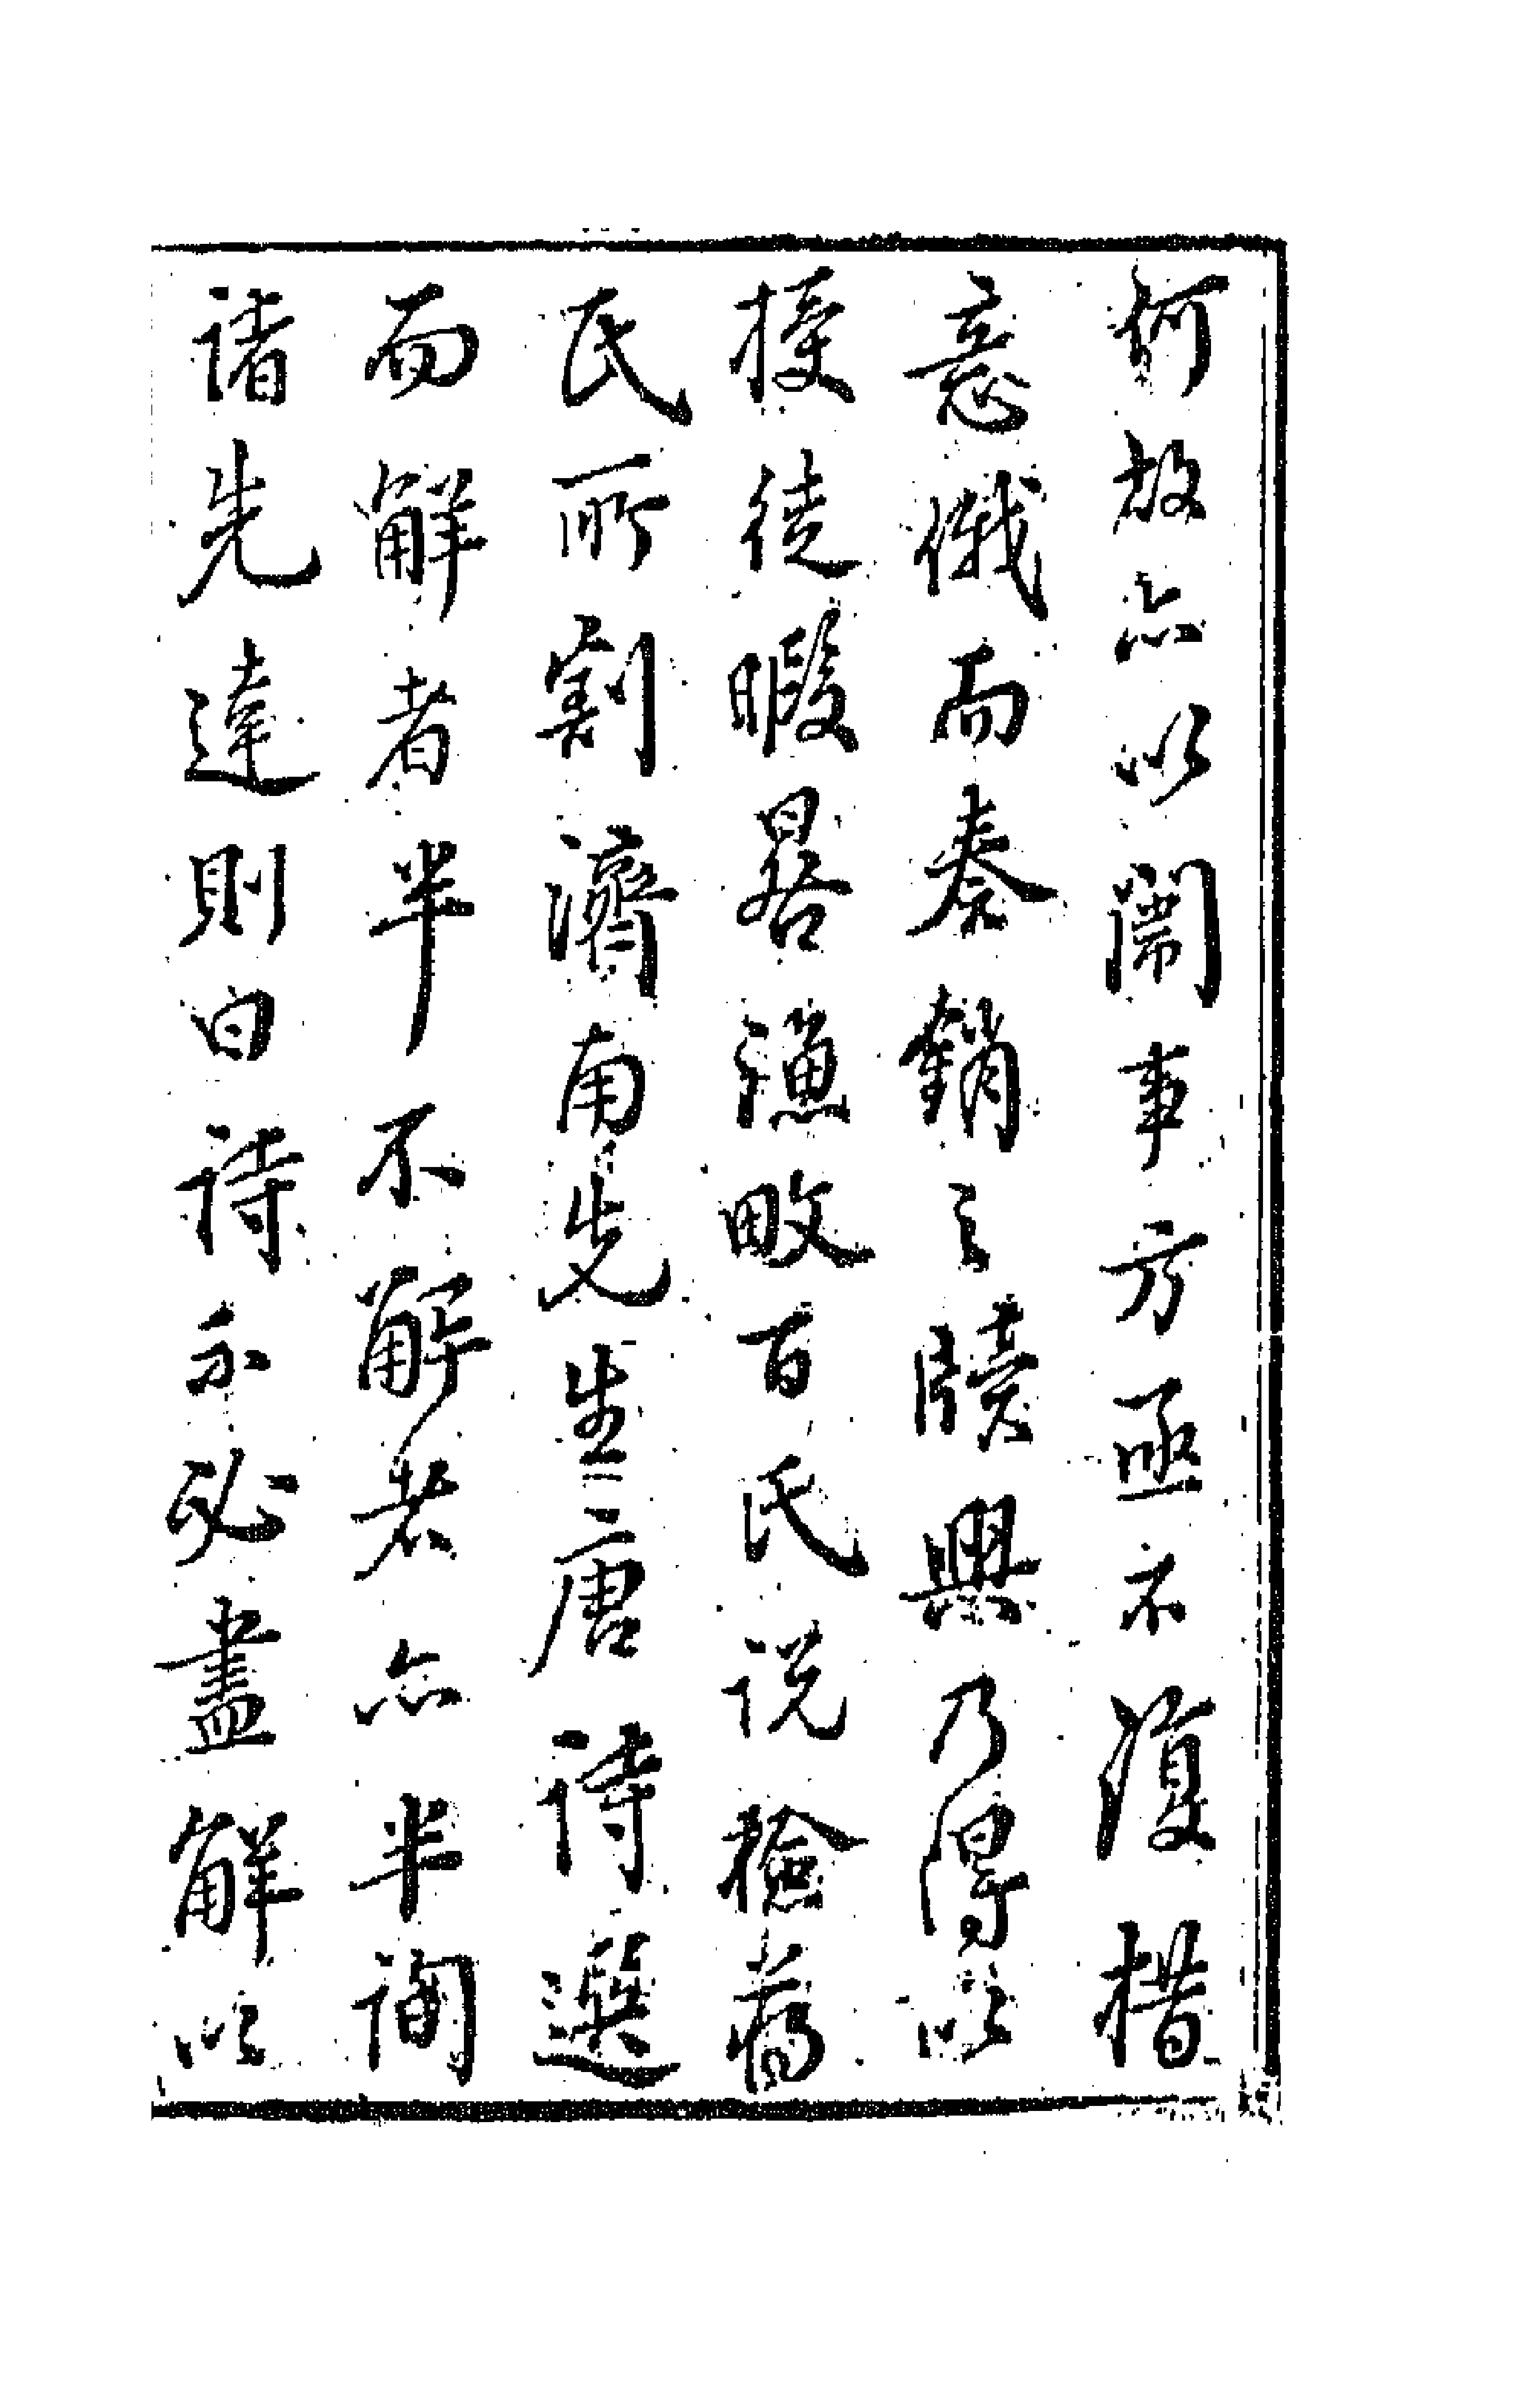 何故亦以鬧事方亟不復措
意俄而奏銷之牘興乃得以
授徒暇晷漁畋百氏說檢舊
民所劄濟南先生唐詩選
而解者半不解者亦半詢
諸先達則曰詩不必盡解以